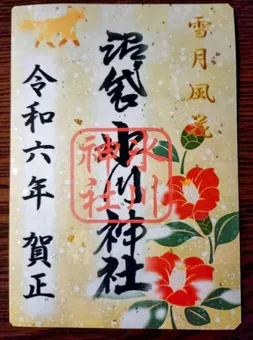 雪月風花
沼袋 氷川神社
氷川
神社
令和六年 賀正